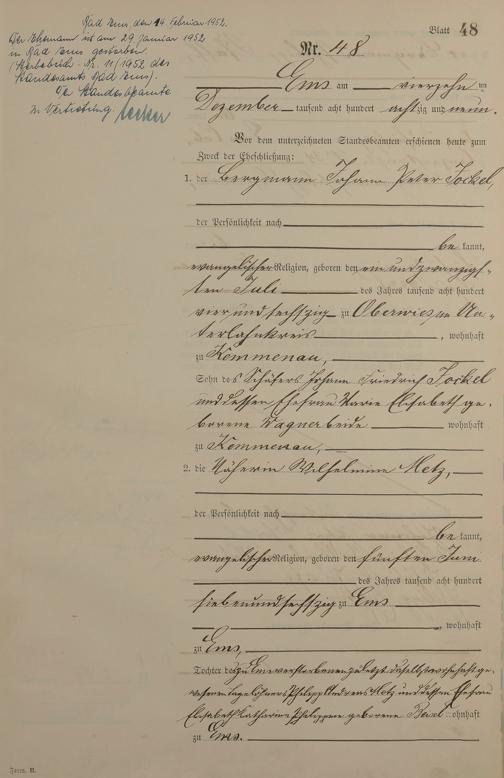 Bad Ems, den 14. Februar 1952.
Der Ehemann ist am 29. Januar 1952
in Bad Ems gestorben.
(Sterbebuch - Nr. 11/1952 des
Standesamts Bad Ems).
Der Standesbeamte
In Vertretung
Blatt 48
Nr. 48
Ems am vierzehn ten
Dezember tausend acht hundert achtzig und neun.
Vor dem unterzeichneten Standesbeamten erschienen heute zum
Zweck der Eheschließung:
1. der Bergmann Johann Peter Jockel,
der Persönlichkeit nach
be kannt,
evangelischer Religion, geboren den ein und zwanzigs-
ten Juli des Jahres tausend acht hundert
vier und sechszig zu Oberwies, im Un-
terlahnkreis, wohnhaft
zu Kemmenau,
Sohn des Schäfers Johann Friedrich Jockel
und dessen Ehefrau Marie Elisabeth ge-
borene Wagner beide wohnhaft
zu Kemmenau,
2. die Näherin Wilhelmine Metz,
der Persönlichkeit nach
be kannt,
evangelischer Religion, geboren den fünften Juni
des Jahres tausend acht hundert
siebenundsechszig zu Ems
, wohnhaft
zu Ems,
Tochter des zu Ems verstorbenen zuletzt daselbst wohnhaft ge-
wesenen Tagelöhners Philipp Andreas Metz und dessen Ehefrau
Elisabeth Katharina Philippine geborene wohnhaft
zu Ems.
Form. B.